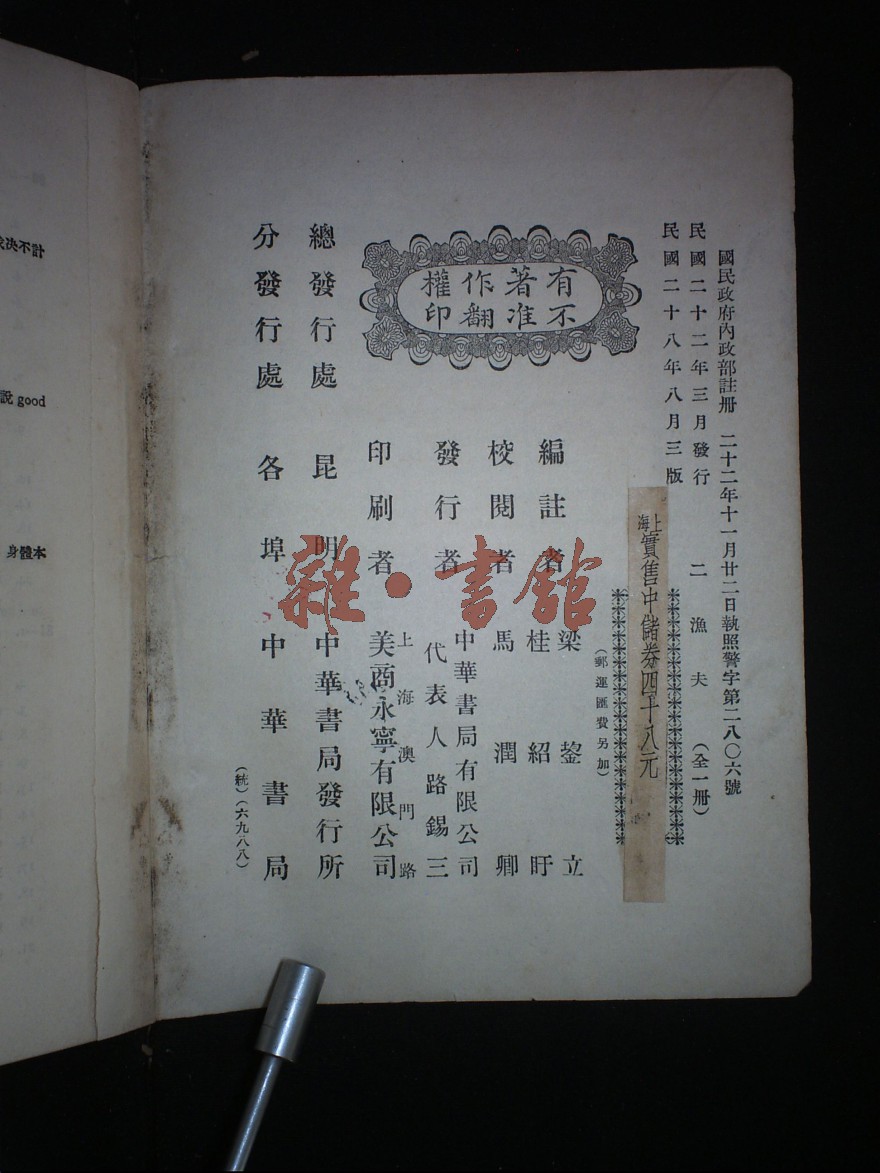 國民政府內政部註冊 二十二年十一月廿二日執照警字第二八〇六號
民國二十二年三月發行
民國二十八年八月三版
二漁夫(全一冊)
上海實售中儲券四十八元
(郵運匯費另加)
有著作權
不准翻印
編註者 梁鋆立
桂紹盱
校閱者 馬潤卿
發行者 中華書局有限公司
代表人路錫三
印刷者 上海澳門路
美商永寧有限公司
總發行處 昆明 中華書局發行所
分發行處 各埠 中華書局
(統)(六九八八)
決不計
說 good
身體本
雜·書館